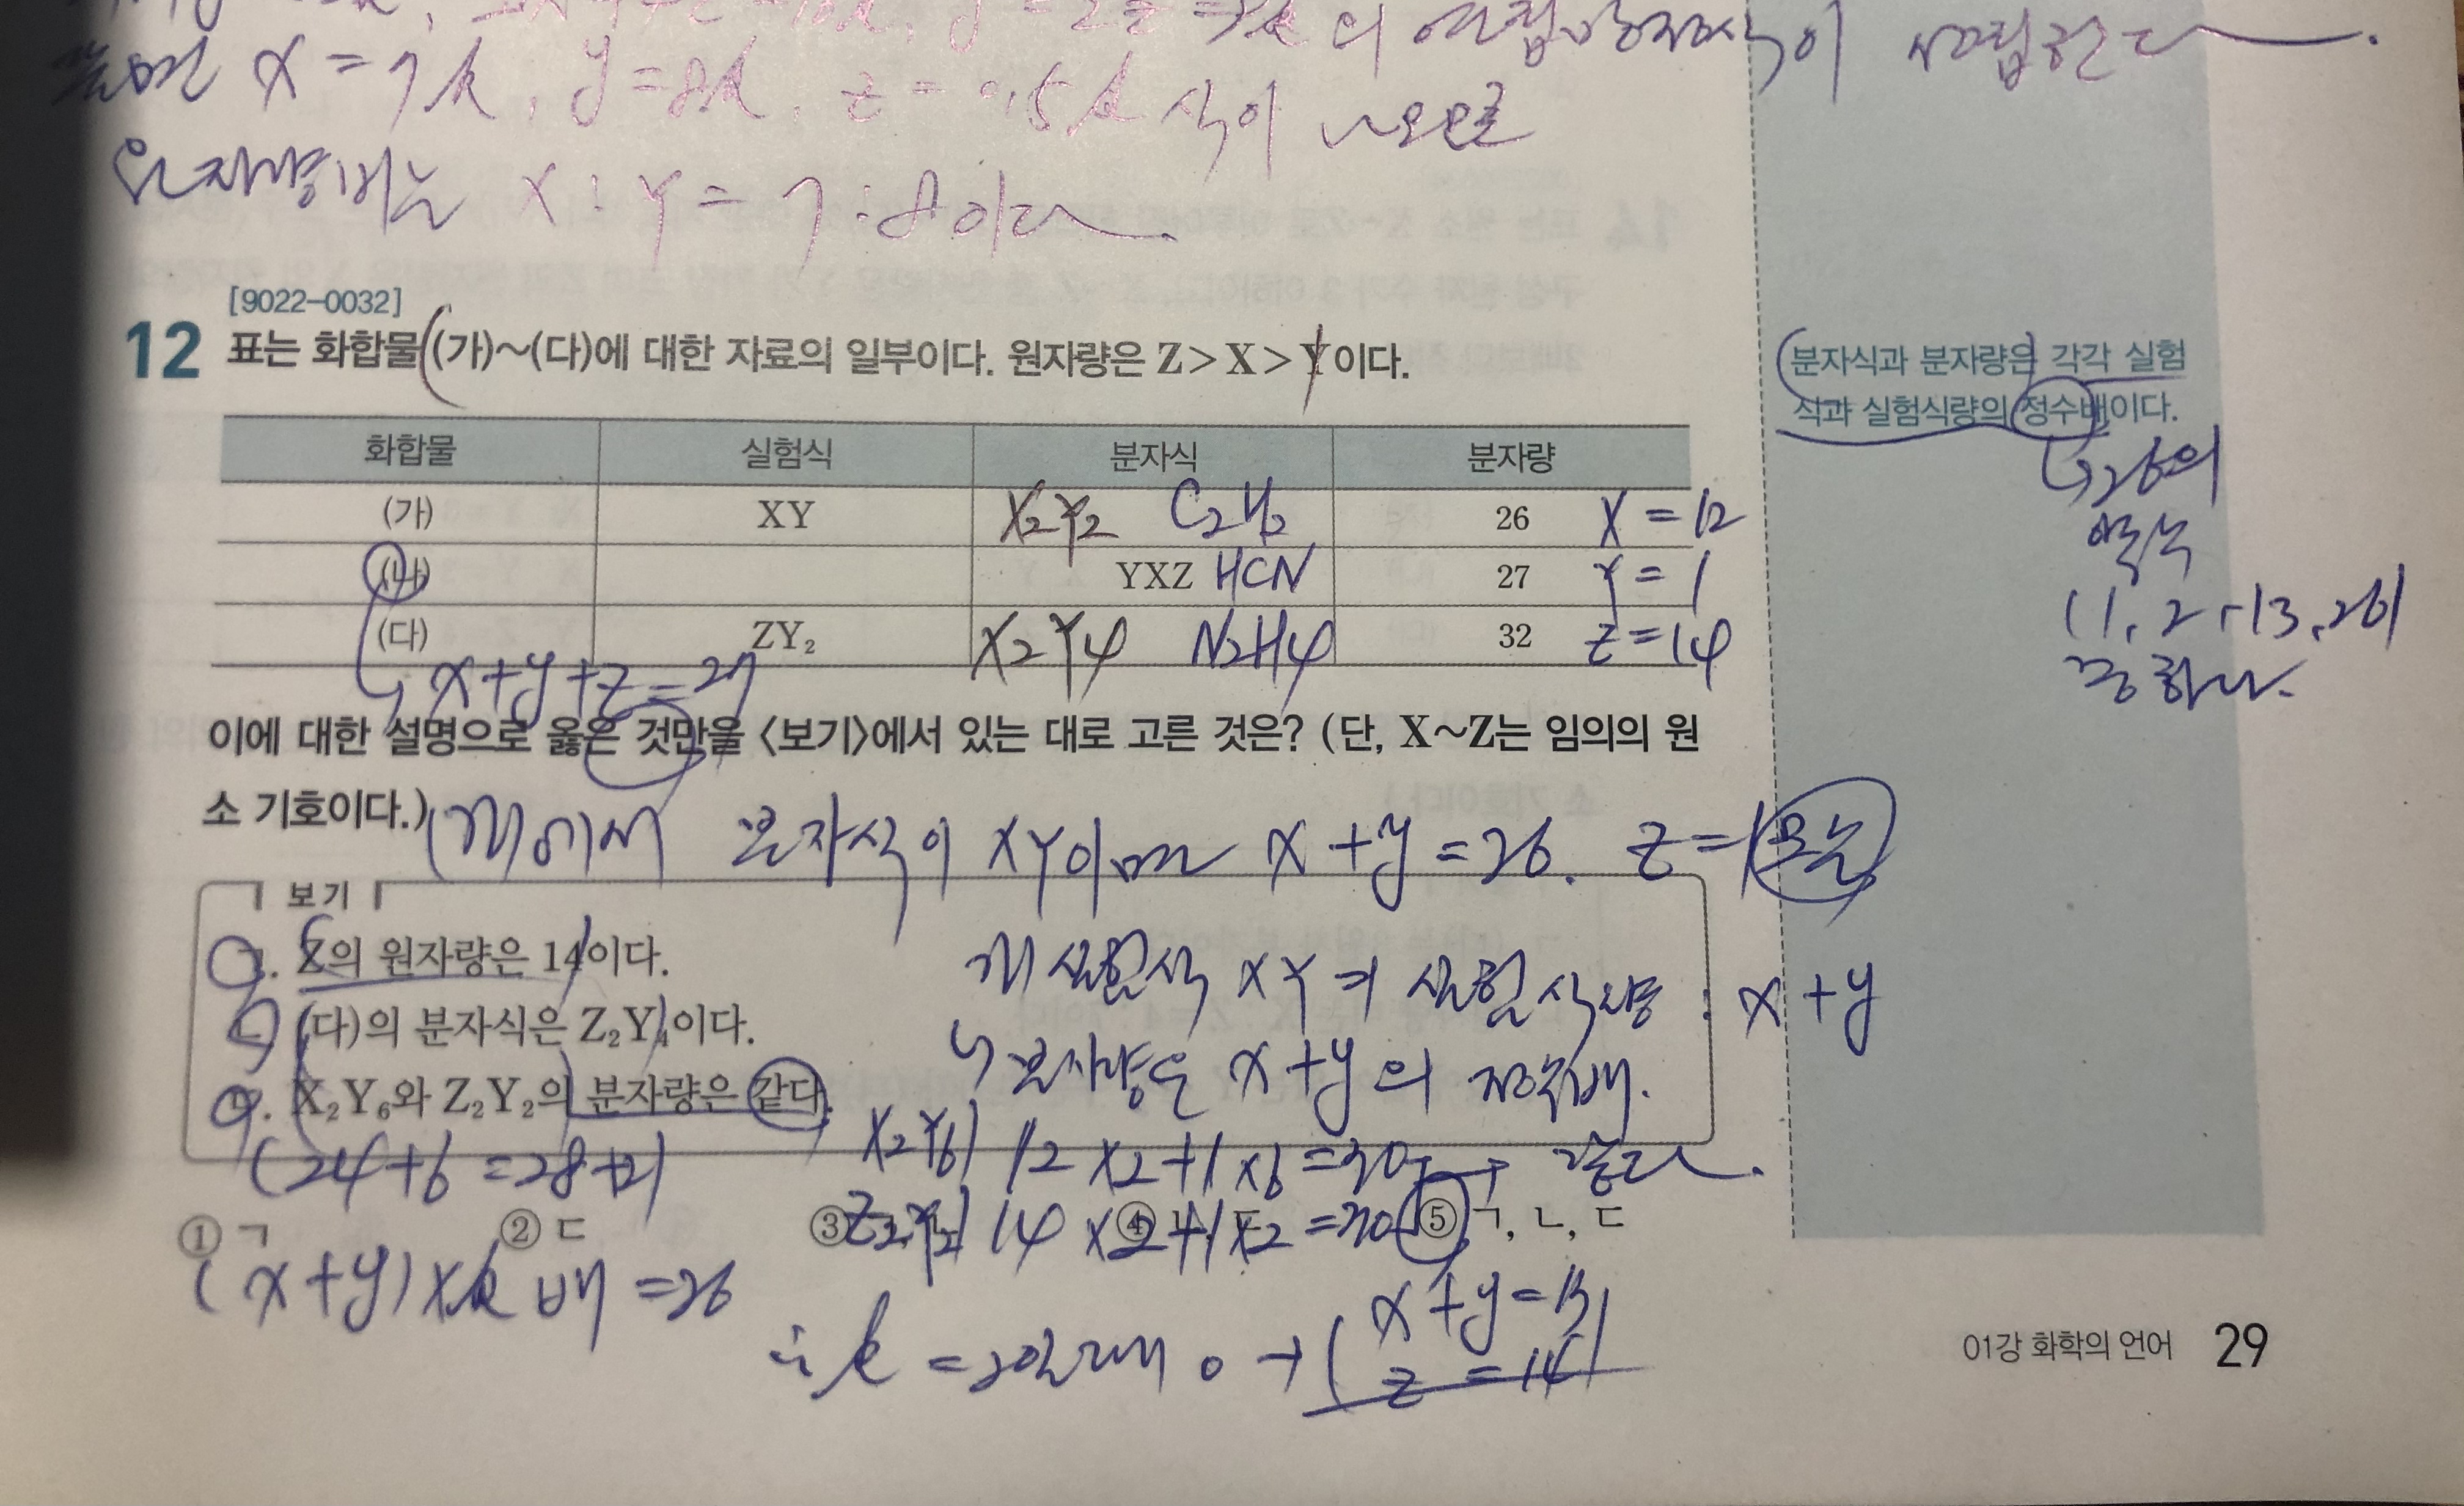 의 연립방정식이 성립한다.
풀면 x = 7k, y = 8k, z = 0.5k 식이 나오므로
원자량비는 X : Y = 7 : 8이다.
[9022-0032]
12 표는 화합물 (가)~(다)에 대한 자료의 일부이다. 원자량은 Z > X > Y이다.
화합물 실험식 분자식 분자량
(가) XY X₂Y₂ C₂H₂ 26 X = 12
(나) YXZ HCN 27 Y = 1
(다) ZY₂ X₂Y₄ N₂H₄ 32 Z = 14
↳ x+y+z=27
분자식과 분자량은 각각 실험
식과 실험식량의 정수배이다.
↳ 26의
약수
(1, 2, 13, 26)
중 하나.
이에 대한 설명으로 옳은 것만을 <보기>에서 있는 대로 고른 것은? (단, X~Z는 임의의 원
소 기호이다.)
(가)에서 분자식이 XY이면 x+y=26. z=1 모순
보기
ㄱ. Z의 원자량은 14이다.
ㄴ. (다)의 분자식은 Z₂Y₄이다.
ㄷ. X₂Y₆와 Z₂Y₂의 분자량은 같다.
(가) 실험식 XY의 실험식량 : x+y
↳ 분자량은 x+y의 정수배.
(24+6=28+2)
X₂Y₆) 12×2+1×6=30 → 같다.
Z₂Y₂) 14×2+1×2=30
① ㄱ ② ㄷ ③ ④ ⑤ ㄱ, ㄴ, ㄷ
(x+y)×k배=26
∴ k=2일 때 o → (x+y=13
z=14)
01강 화학의 언어 29